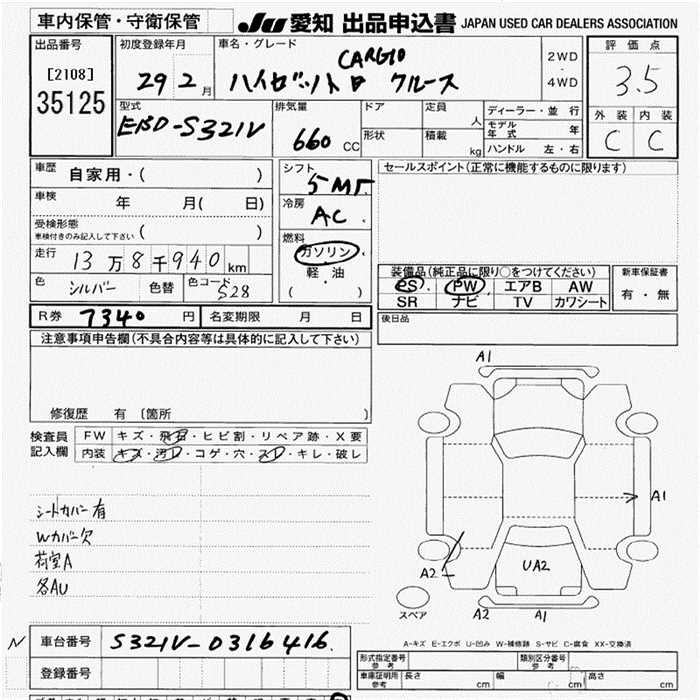 車内保管・守衛保管 JU 愛知 出品申込書 JAPAN USED CAR DEALERS ASSOCIATION
出品番号 初度登録年月 車名・グレード 評価点
[2108] 29 2 月 CARGO 2WD ・ 4WD 3.5
35125 ハイゼット クルーズ
型式 排気量 ドア 定員 人 ディーラー・並行 外装 内装
EBD-S321V 660 CC 形状 積載 kg モデル年式 年 C C
ハンドル 左・右
車歴 自家用・( ) シフト 5MT セールスポイント(正常に機能するものに限ります)
車検 年 月( 日) 冷房 AC
受検形態 ( )
車検付きのみ記入して下さい
燃料 ガソリン
走行 13万8千940km 軽・油
装備品(純正品に限り○をつけてください) 新車保証書
色 シルバー 色替 色コード S28 ( ) PS PW エアB AW 有・無
SR ナビ TV カワシート
R券 7340 円 名変期限 月 日 後日品
注意事項申告欄(不具合内容等は具体的に記入して下さい)
修復歴 有 [箇所 ]
検査員 FW キズ・飛石・ヒビ割・リペア跡・X要
記入欄 内装 キズ・汚レ・コゲ・穴・スレ・キレ・破レ
A1
A1
シートカバー有
Wカバー欠
荷室A
各AU
A2
UA2
スペア A2 A1
N 車台番号 S321V-0316416.
A-キズ E-エクボ U-凹み W-補修跡 S-サビ C-腐食 XX-交換済
登録番号 形式指定番号 参考 類別区分番号 参考
車庫証明用 参考 長さ cm 幅 cm 高さ cm